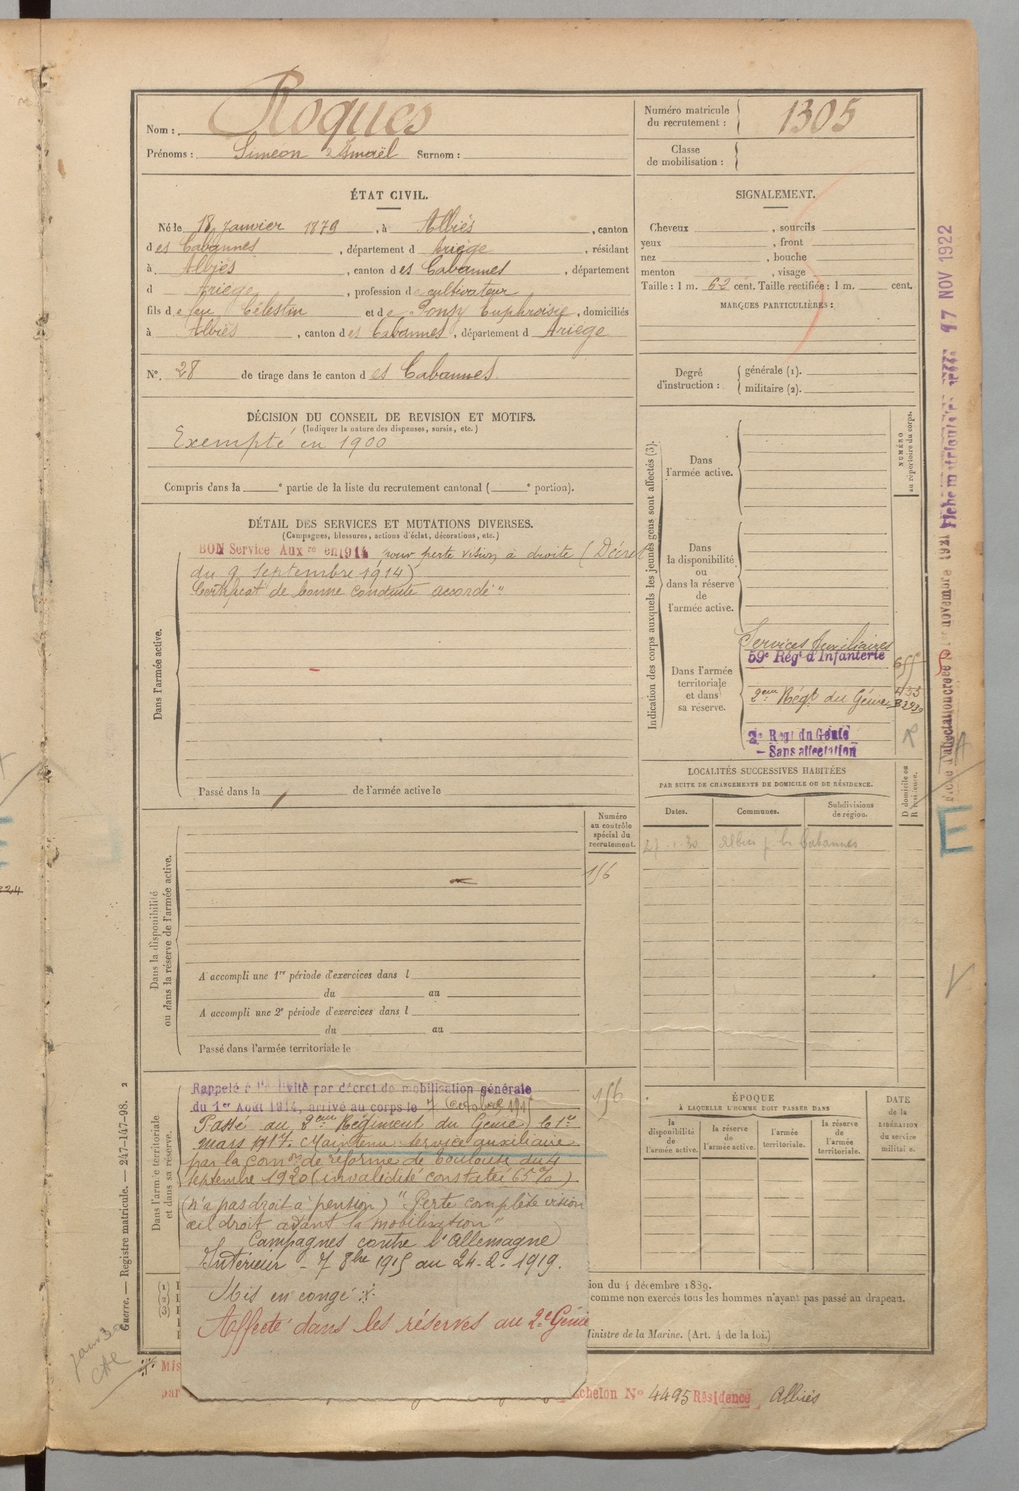 Nom : Roques
Prénoms : Siméon Ismaël Surnom :
Numéro matricule du recrutement : 1305
Classe de mobilisation :
ÉTAT CIVIL.
Né le 18 Janvier 1879, à Albiès, canton
des Cabannes, département d Ariège, résidant
à Albiès, canton des Cabannes, département
d Ariège, profession de cultivateur
fils de feu Célestin et de Euphroisie, domiciliés
à Albiès, canton des Cabannes, département d Ariège
N° 28 de tirage dans le canton des Cabannes.
SIGNALEMENT.
Cheveux , sourcils
yeux , front
nez , bouche
menton , visage
Taille : 1 m. 62 cent. Taille rectifiée : 1 m. cent.
MARQUES PARTICULIÈRES :
Degré d'instruction : générale (1).
militaire (2).
DÉCISION DU CONSEIL DE REVISION ET MOTIFS.
(Indiquer la nature des dispenses, sursis, etc.)
Exempté en 1900
Compris dans la e partie de la liste du recrutement cantonal ( e portion).
DÉTAIL DES SERVICES ET MUTATIONS DIVERSES.
(Campagnes, blessures, actions d'éclat, décorations, etc.)
BON Service Aux re en 1914 pour perte vision à droite (Décret
du 9 Septembre 1914)
Certificat de bonne conduite accordé"
Dans l'armée active.
Passé dans la de l'armée active le
Indication des corps auxquels les jeunes gens sont affectés (3).
NUMÉRO au répertoire du corps.
Dans l'armée active.
Dans la disponibilité ou dans la réserve de l'armée active.
Dans l'armée territoriale et dans sa réserve.
Services Auxiliaires
59e Régt d'Infanterie
2eme Régt du Génie
2e Regt du Génie
– Sans affectation
LOCALITÉS SUCCESSIVES HABITÉES
PAR SUITE DE CHANGEMENTS DE DOMICILE OU DE RÉSIDENCE.
Dates. Communes. Subdivisions de région. D domicile ou R résidence.
Albiès Cabannes
Dans la disponibilité ou dans la réserve de l'armée active.
Numéro au contrôle spécial du recrutement.
156
A accompli une 1re période d'exercices dans l
du au
A accompli une 2e période d'exercices dans l
du au
Passé dans l'armée territoriale le
Dans l'armée territoriale et dans sa réserve.
Rappelé à l'activité par décret de mobilisation générale
du 1er Août 1914, arrivé au corps le 7 Octobre 1915
156
Passé au 2eme Régiment du Génie le 1er
mars 1917. Maintenu service auxiliaire
par la Comon de réforme de Toulouse du 4
septembre 1920 (invalidité constatée 65%)
(n'a pas droit à pension) "Perte complète vision
œil droit avant la mobilisation"
Campagnes contre l'Allemagne
Intérieur – 7 8bre 1915 au 24-2-1919.
Mis en congé
Affecté dans les réserves au 2e Génie
ÉPOQUE
À LAQUELLE L'HOMME DOIT PASSER DANS
la disponibilité de l'armée active.
la réserve de l'armée active.
l'armée territoriale.
la réserve de l'armée territoriale.
DATE de la LIBÉRATION du service militaire.
ion du 4 décembre 1889.
comme non exercés tous les hommes n'ayant pas passé au drapeau.
Ministre de la Marine. (Art. 4 de la loi.)
Mis
par
Echelon N° 4495 Résidence Albiès
Guerre. — Registre matricule. — 247-147-98. 2
17 NOV 1922
E